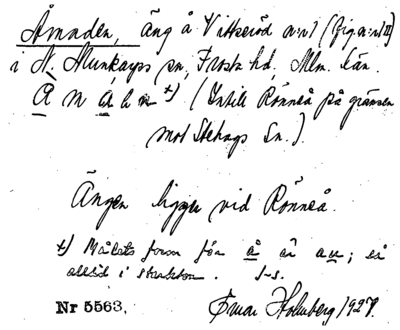 Åmaden, äng å Vittseröd n:o 1 (fig. a:n II)
i N. Munkarps sn, Frosta hd, Mlm. län.
(Intill Rönneå på gränsen
mot Stehags Sn.)
Ängen ligger vid Rönneå.
+) Målets form för å är au; så
alltid i starkton. I-s.
Nr 5563. Einar Holmberg 1927.